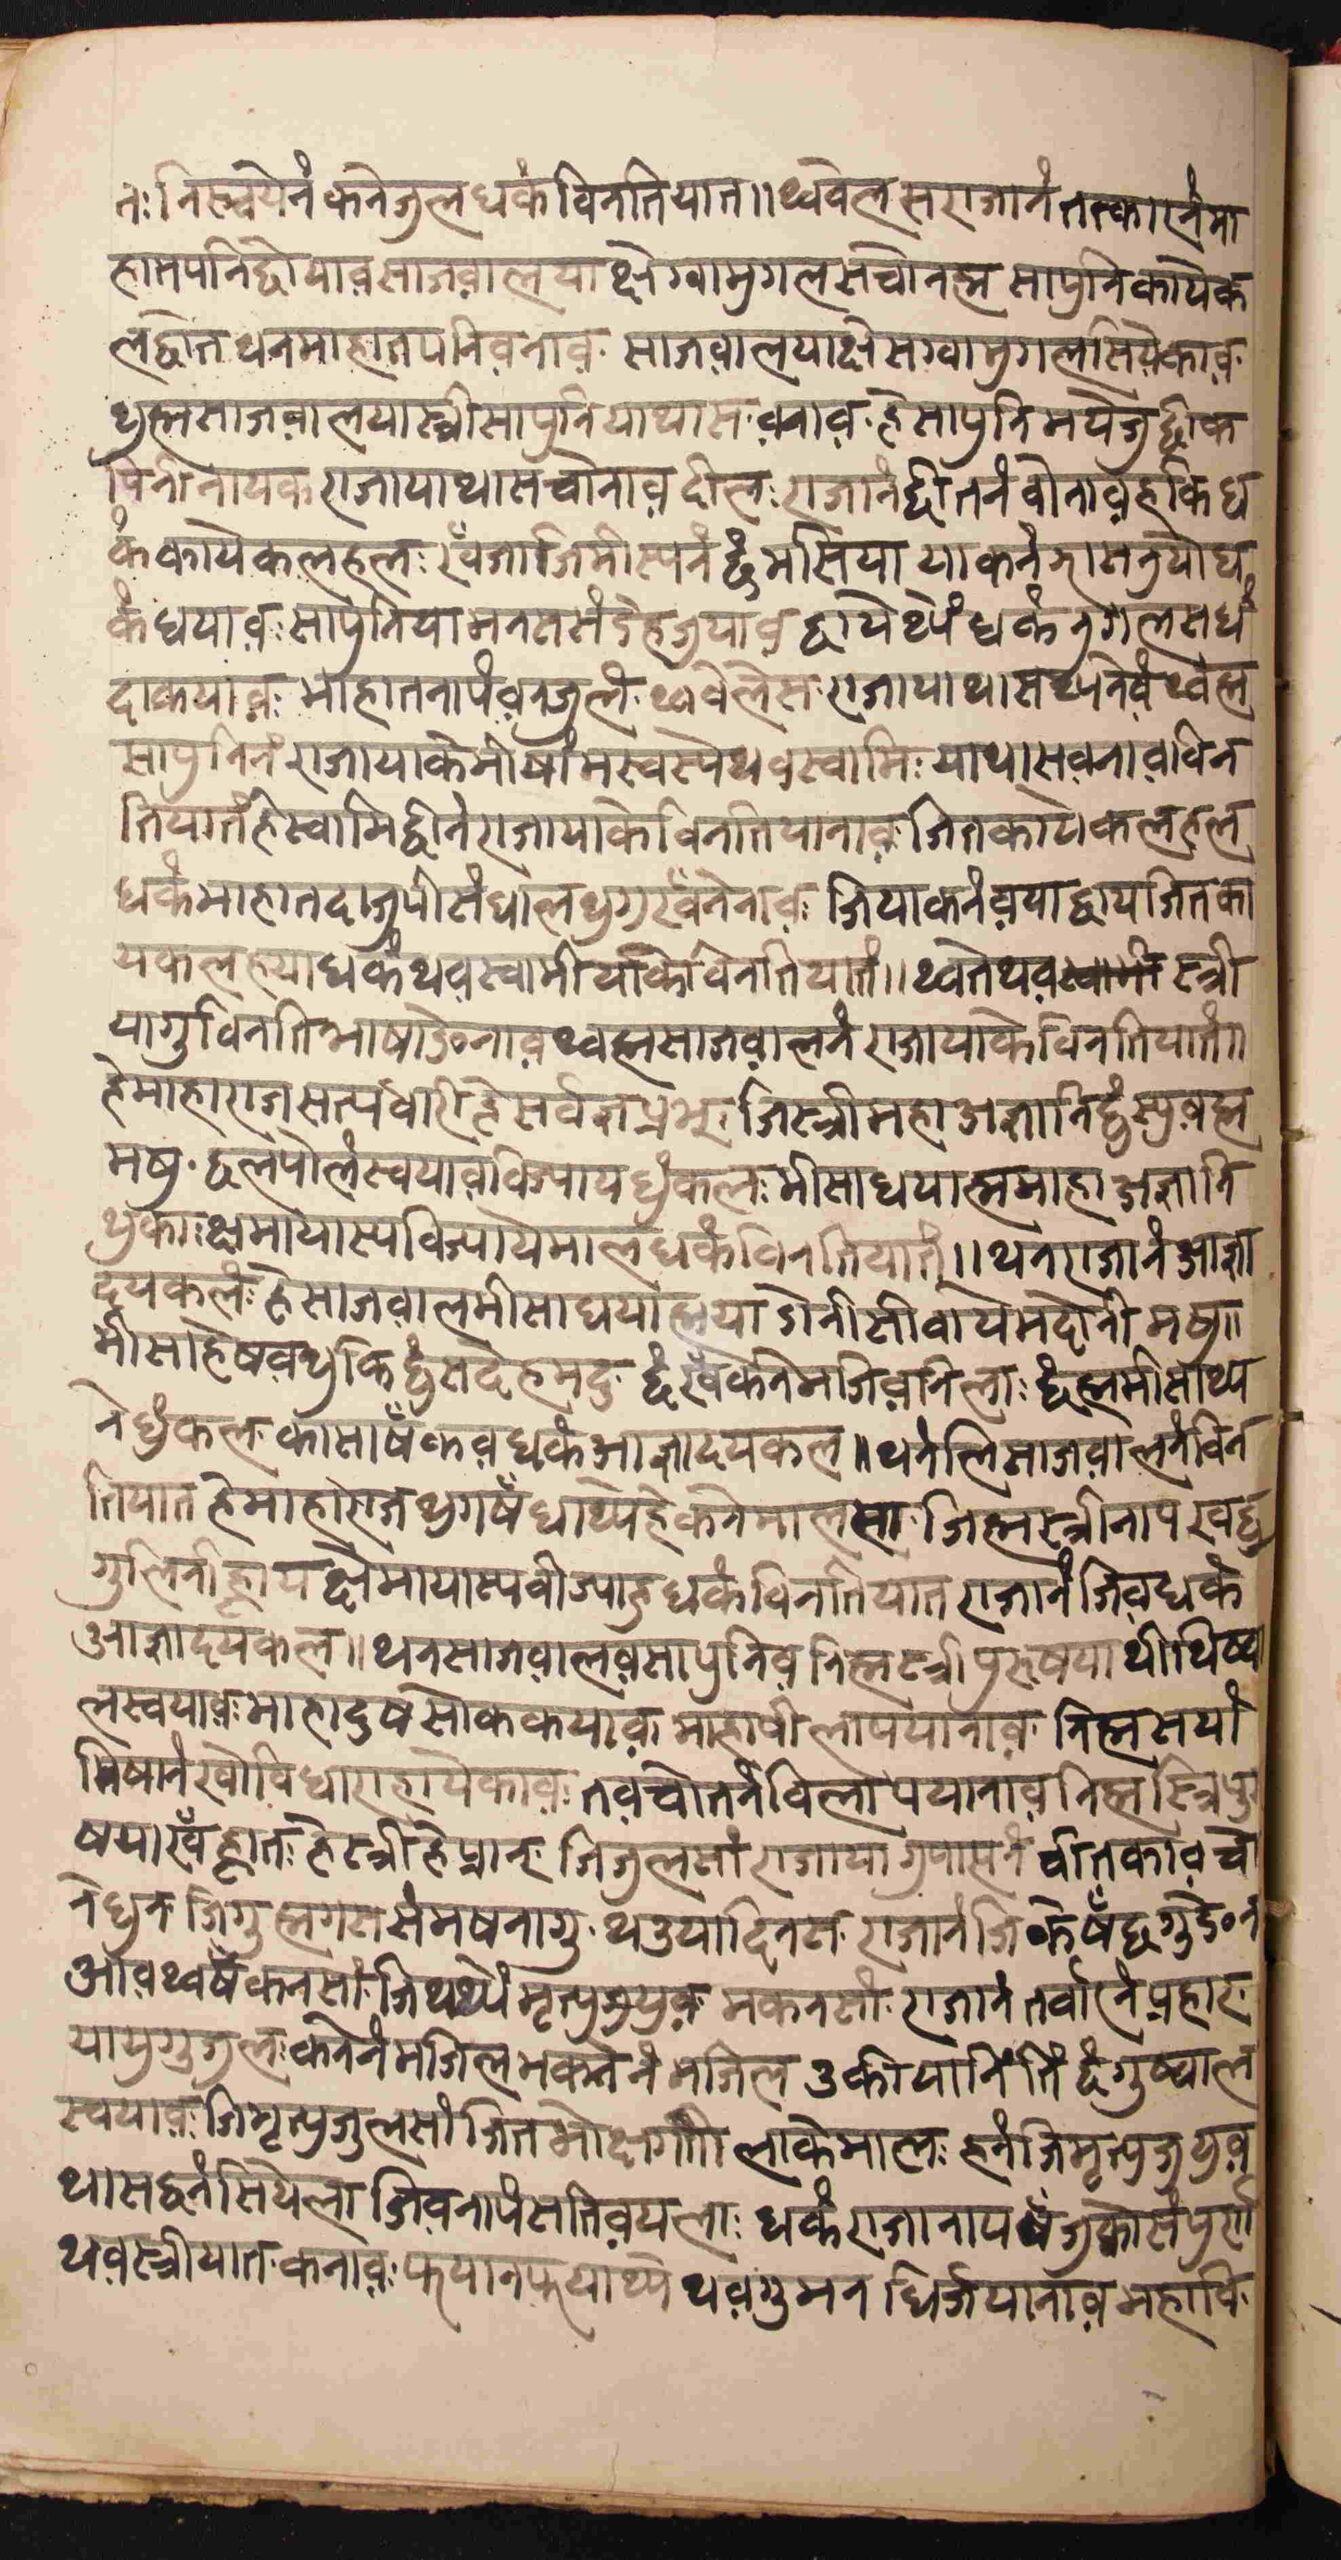 तः निस्चयेनं कनेजुल धकं विनति यात॥ थ्ववेलस राजानं तत्कारनं मा
हातपनि छोयाव साजवालया छे ग्वामुगलसचोनह्म सापुनि कायेक
लछोत थन माहातपनि वनाव साजवालया छेस ग्वामुगलसियेकाव
थुह्म साजवालया स्त्री सापुनियाथास वनाव हे सापुनि मयेजु छीक
पिनी नायक राजायाथास चोनाव दील राजानं छीतनं बोनाव हकि ध
कं कायेकल हल खँ जा जिमीस्यनं छुं मसिया याकनं झासनुयो ध
कं धयाव सापुनिया मनस संदेह जुयाव छायेथ्यें धकं नुगलस धं
दाकयाव माहातनापं वनजुलं थ्ववेलस राजायाथास थ्यनेवं थ्वह्म
सापुनिनं राजायाके मोषां मस्वस्ये थवस्वामियाथास वनाव विन
ति यातं हे स्वामि छीनं राजायाके विनति यानाव जित कायेकल हल
धकं माहातदाजुपीसं धाल थुगु खँ नेनाव जि याकनं वया छाय जित का
यकल हया धकं थवस्वामीयाके विनति यातं॥ थ्वते थव स्त्री
यागु विनति भाषा ङेनाव थ्वह्म साजवालनं राजायाके विनति यातं॥
हे माहाराज सत्यधारि हे सर्वज्ञ प्रभु जि स्त्री महा अज्ञानि छुं स्युवह्म
मषु छलपोलं स्वयाव विज्याय धुंकल मीसा धयाह्म माहा अज्ञानि
थुका क्षमायास्य विज्याये माल धकं विनति यातं॥ थन राजानं आज्ञा
दयकलं हे साजवाल मीसा धयाह्मया ङेनीसीवाये मदोनी मषु॥
मीसाहे षव थुकि छुं सदेह मदु छं खँ कने मजिवनिला छंह्म मीसा थ्य
ने धुंकल कासा षँ कनव धकं आज्ञा दयकल॥ थनंलि साजवालनं विन
ति यात हे माहाराज थुगु षँ धाथ्येंहे कने मालसा जिह्म स्त्रीनाप स्वछु
गुलि नी ह्लाय क्षेमायास्य वीज्याहु धकं विनति यात राजानं जिव धकं
आज्ञा दयकल॥ थन साजवालव सापुनिव निह्म स्त्री पुरूषया थीथि ष्वा
ल स्वयाव माहा दुष सोककयाव माहा वीलाप यानाव निह्मसयां
मिषानं खोविधारा हायेकाव तवचोतनं विलाप यानाव निह्म स्त्रि पुरु
षया खँ ह्लात हे स्त्री हे प्रान जि जुलसां राजाया गुपासनं चितकाव चो
ने धुन जिगु ह्मगतसं मषनागु थउया दिनस राजानं जिके षँ छगु ङेन
आव थ्व षँ कनसां जि थथ्यें मृत्यु जुयुव मकनसां राजानं तर्वारनं प्रहार
यायुगु जुल कनेनं मजिल मकनेनं मजिल उकीया निंतिं छंगु ष्वाल
स्वयाव जि मृत्यु जुलसां जित मोक्षगती लाके माल हनं जि मृत्यु जुयुव
थास छनं सियेला जिव नापं सतिवयला धकं राजानाप षँ जुको संपूर्ण
थव स्त्रीयात कनाव फयानफयाथ्यें थवगु मन धिर्ज यानाव महावि